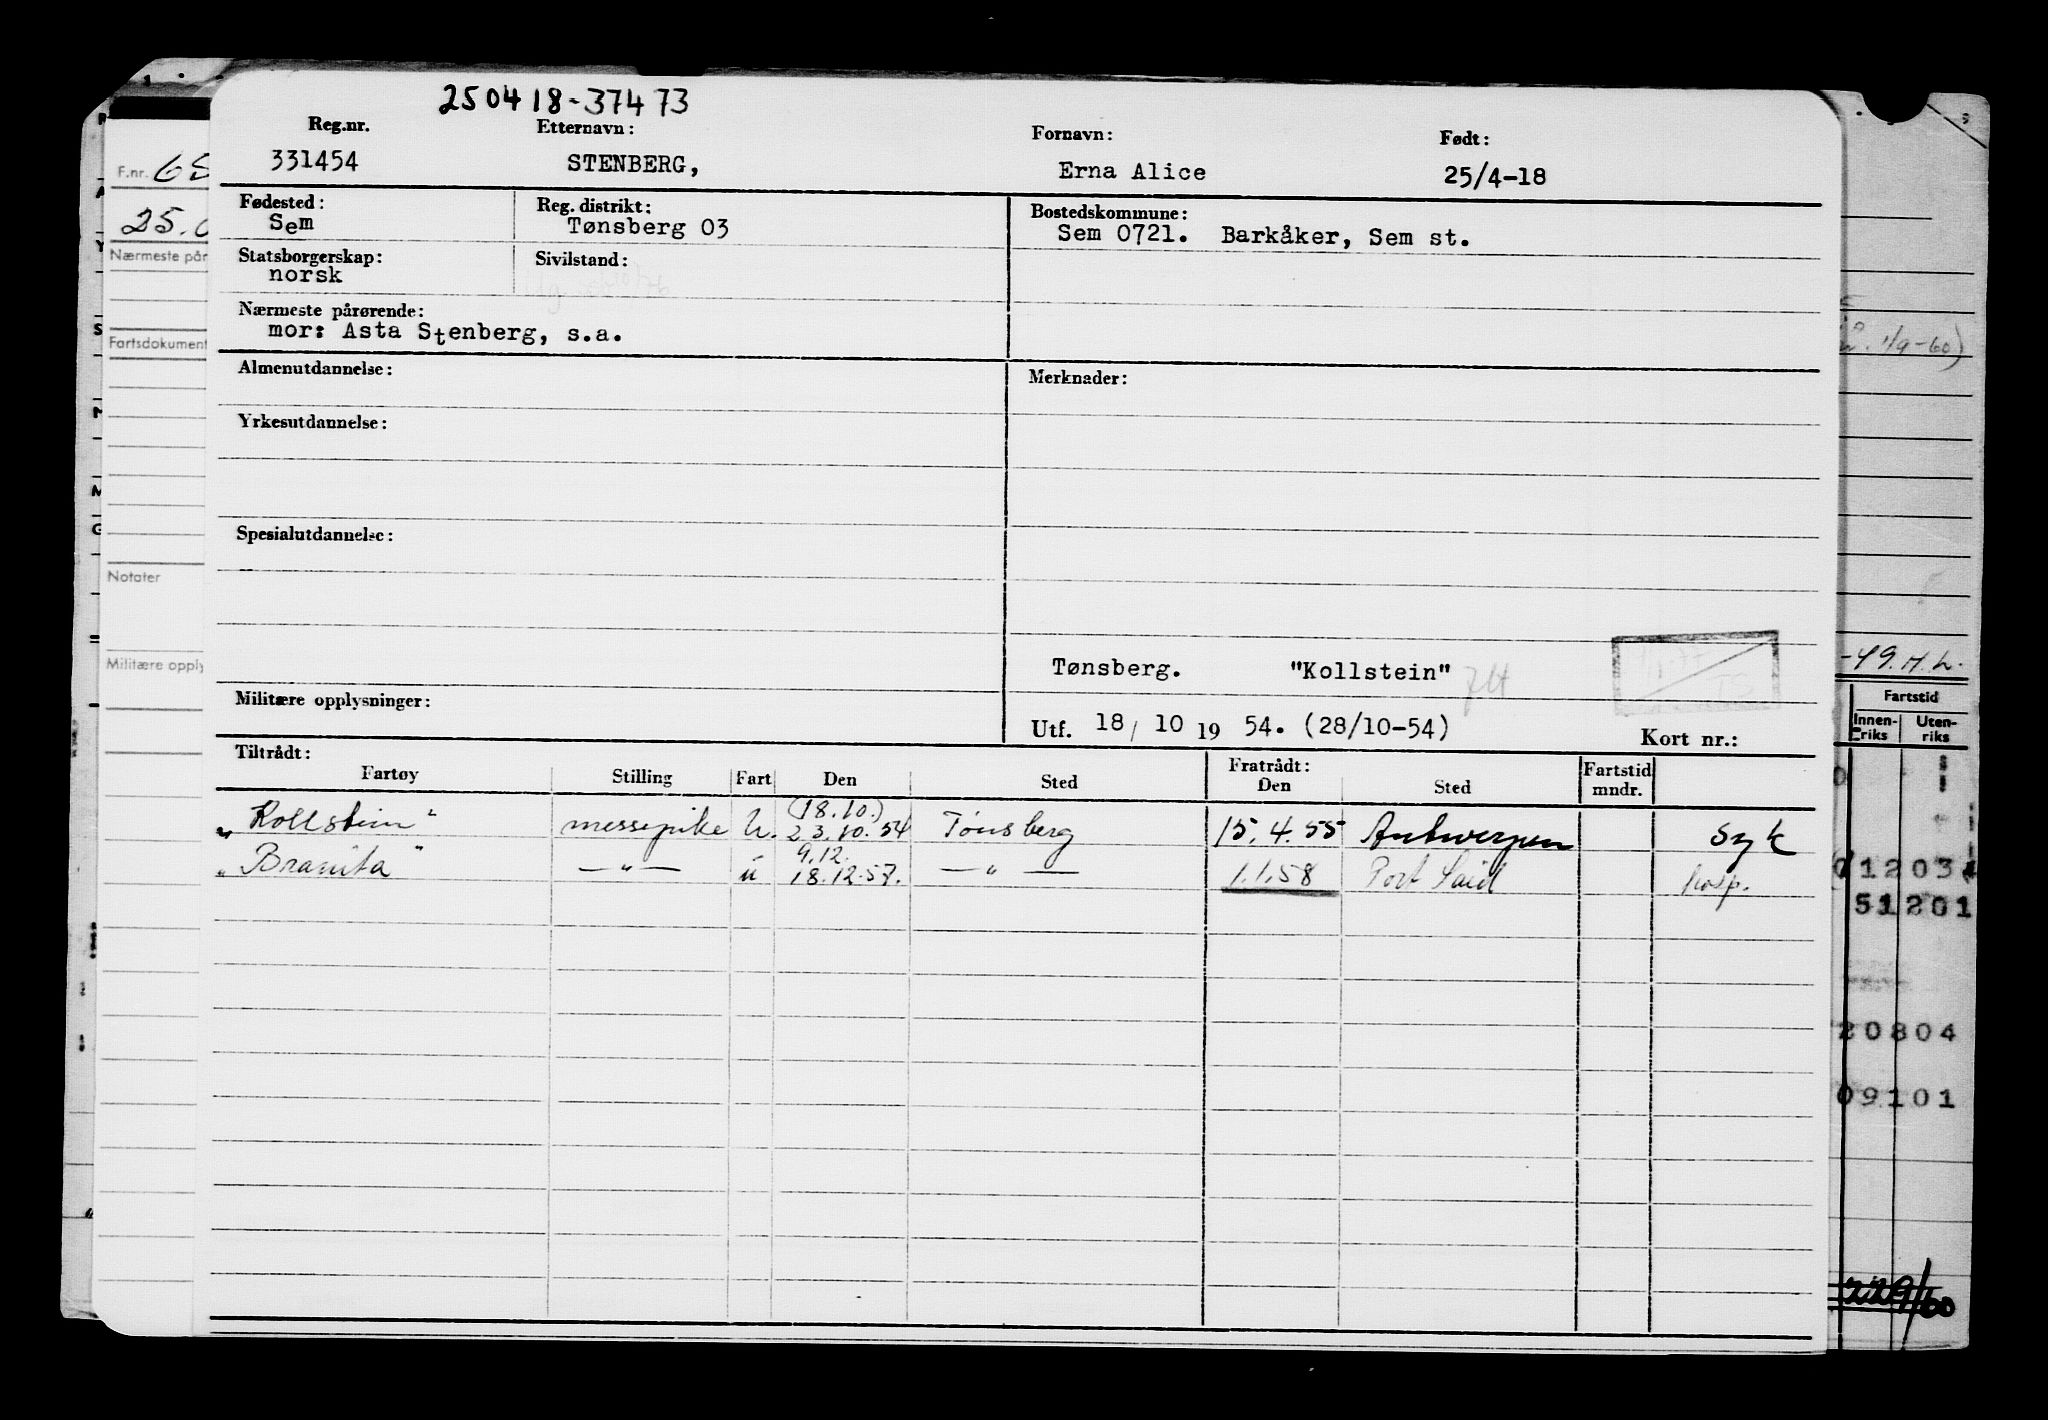 250418-37473
Reg.nr. Etternavn: Fornavn: Født:
331454 STENBERG, Erna Alice 25/4-18
F.nr.
25.0
Fødested: Reg. distrikt: Bostedskommune:
Sem Tønsberg 03 Sem 0721. Barkåker, Sem st.
Nærmeste pår
Statsborgerskap: Sivilstand:
norsk
Nærmeste pårørende:
mor: Asta Stenberg, s.a.
Fartsdokument
1/9-60)
Almenutdannelse: Merknader:
Yrkesutdannelse:
Spesialutdannelse:
Notater
Militære opply
-49. H. L.
Tønsberg. "Kollstein"
Militære opplysninger:
Utf. 18/10 19 54. (28/10-54) Kort nr.:
Fartstid
Innen-riks Uten-riks
Tiltrådt: Fratrådt:
Fartøy Stilling Fart Den Sted Den Sted Fartstid mndr.
(18.10.)
"Kollstein" messepike U. 23.10.54 Tønsberg 15.4.55 Antwerpen syk
9.12.
"Branita" —"— u 18.12.57. —"— 1.1.58 Port Said hosp.
01203
51201
20804
09101